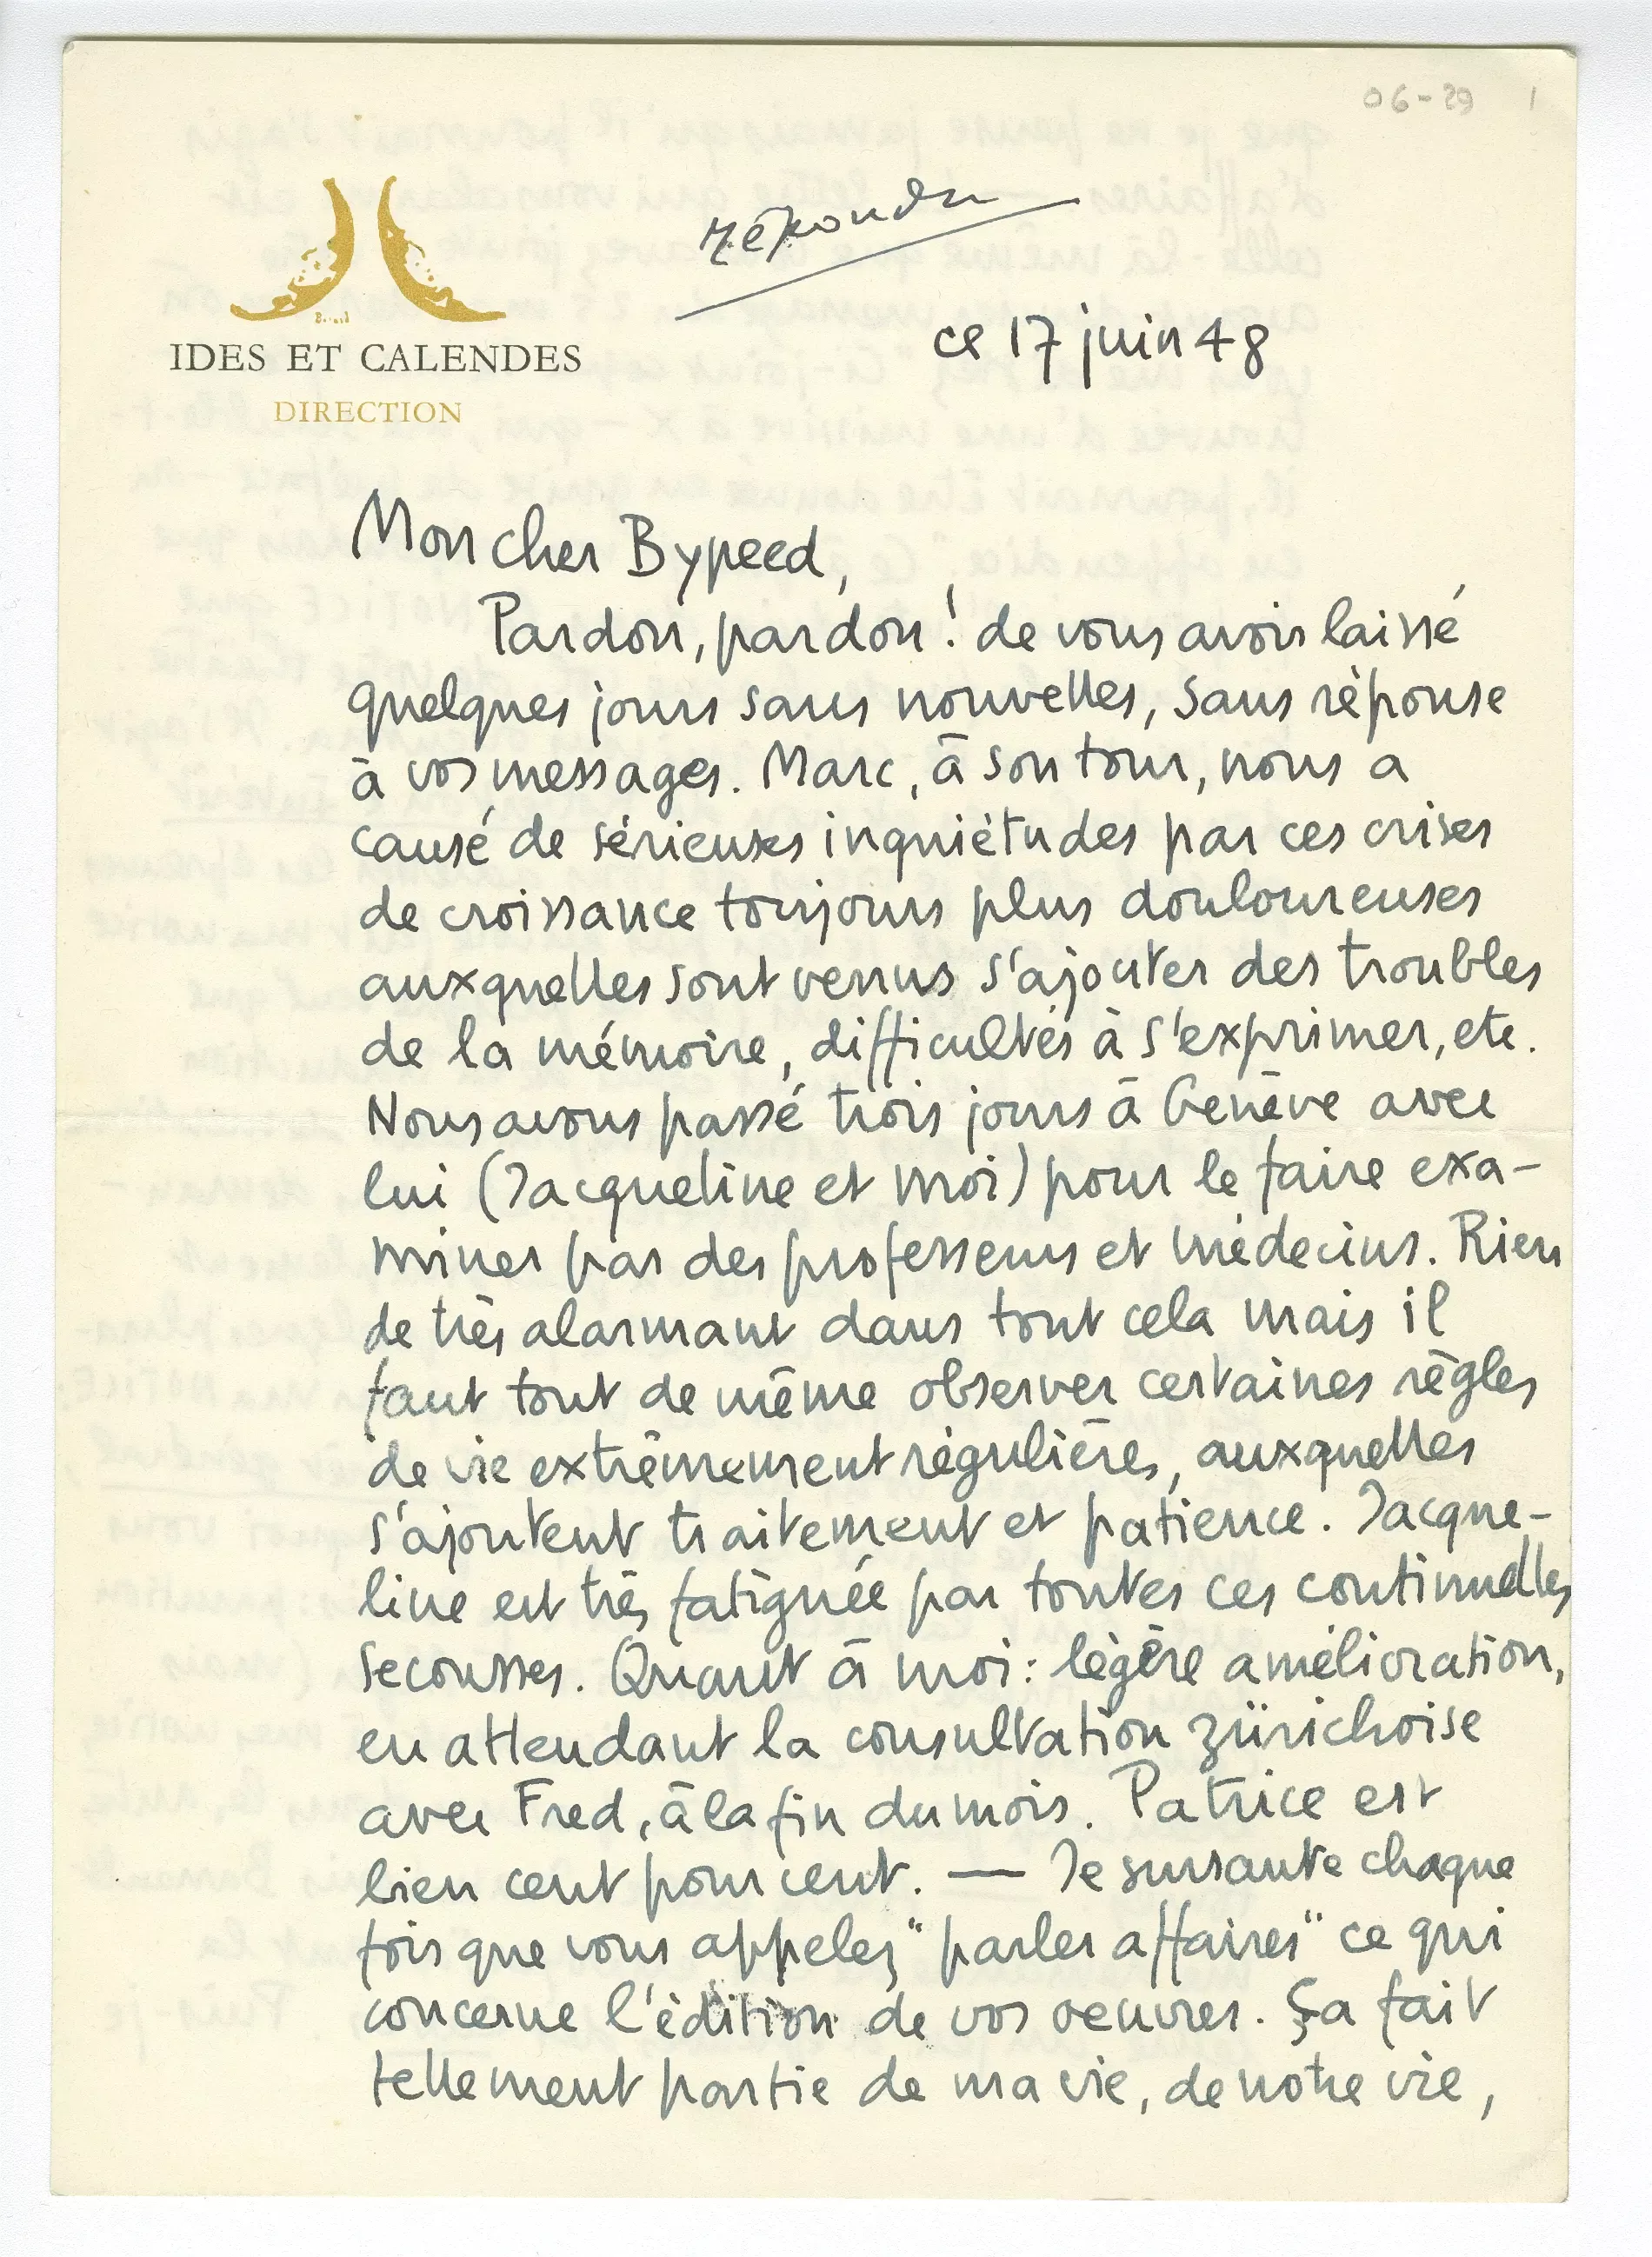 06-29 1
répondu
IDES ET CALENDES
DIRECTION
ce 17 juin 48
Mon cher Bypeed,
Pardon, pardon ! de vous avoir laissé
quelques jours sans nouvelles, sans réponse
à vos messages. Marc, à son tour, nous a
causé de sérieuses inquiétudes par ces crises
de croissance toujours plus douloureuses
auxquelles sont venus s'ajouter des troubles
de la mémoire, difficultés à s'exprimer, etc.
Nous avons passé trois jours à Genève avec
lui (Jacqueline et moi) pour le faire exa-
miner par des professeurs et médecins. Rien
de très alarmant dans tout cela mais il
faut tout de même observer certaines règles
de vie extrêmement régulières, auxquelles
s'ajoutent traitement et patience. Jacque-
line est très fatiguée par toutes ces continuelles
secousses. Quant à moi : légère amélioration,
en attendant la consultation zürichoise
avec Fred, à la fin du mois. Patrice est
bien cent pour cent. — Je sursaute chaque
fois que vous appelez "parler affaires" ce qui
concerne l'édition de vos oeuvres. Ça fait
tellement partie de ma vie, de notre vie,